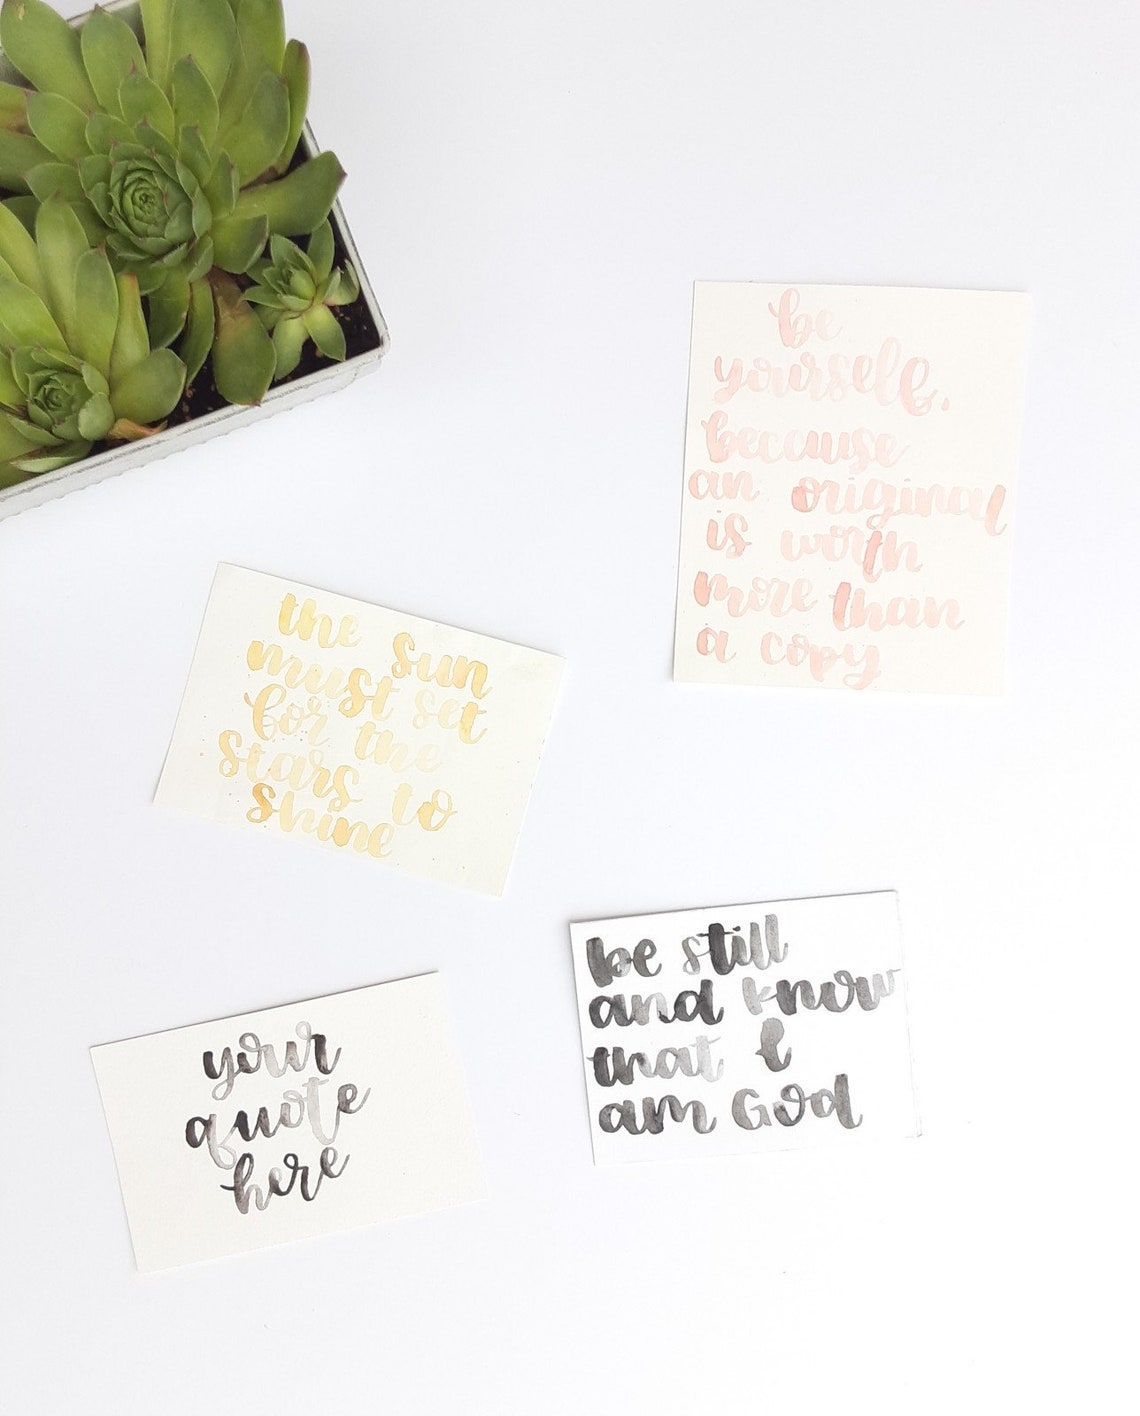 be
yourself,
because
an original
is worth
more than
a copy
the sun
must set
for the
stars to
shine
be still
and know
that I
am God
your
quote
here